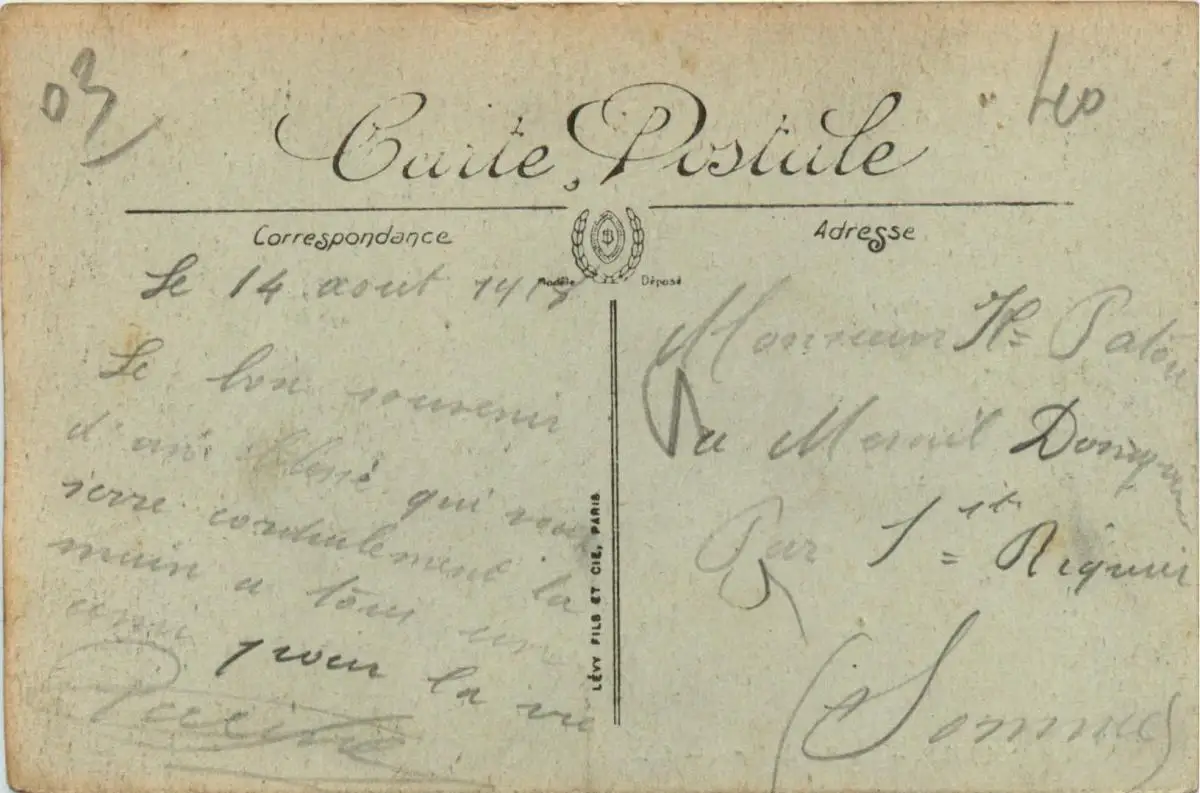 03
Carte Postale
Correspondance
Adresse
Modèle Déposé
Le 14 aout
Le bon souvenir
d'un blessé qui vous
serre cordialement la
main a tous un
ami pour la vie
LÉVY FILS ET CIE, PARIS
Monsieur H=
Au Mesnil
Par St= Riquier
(Somme)